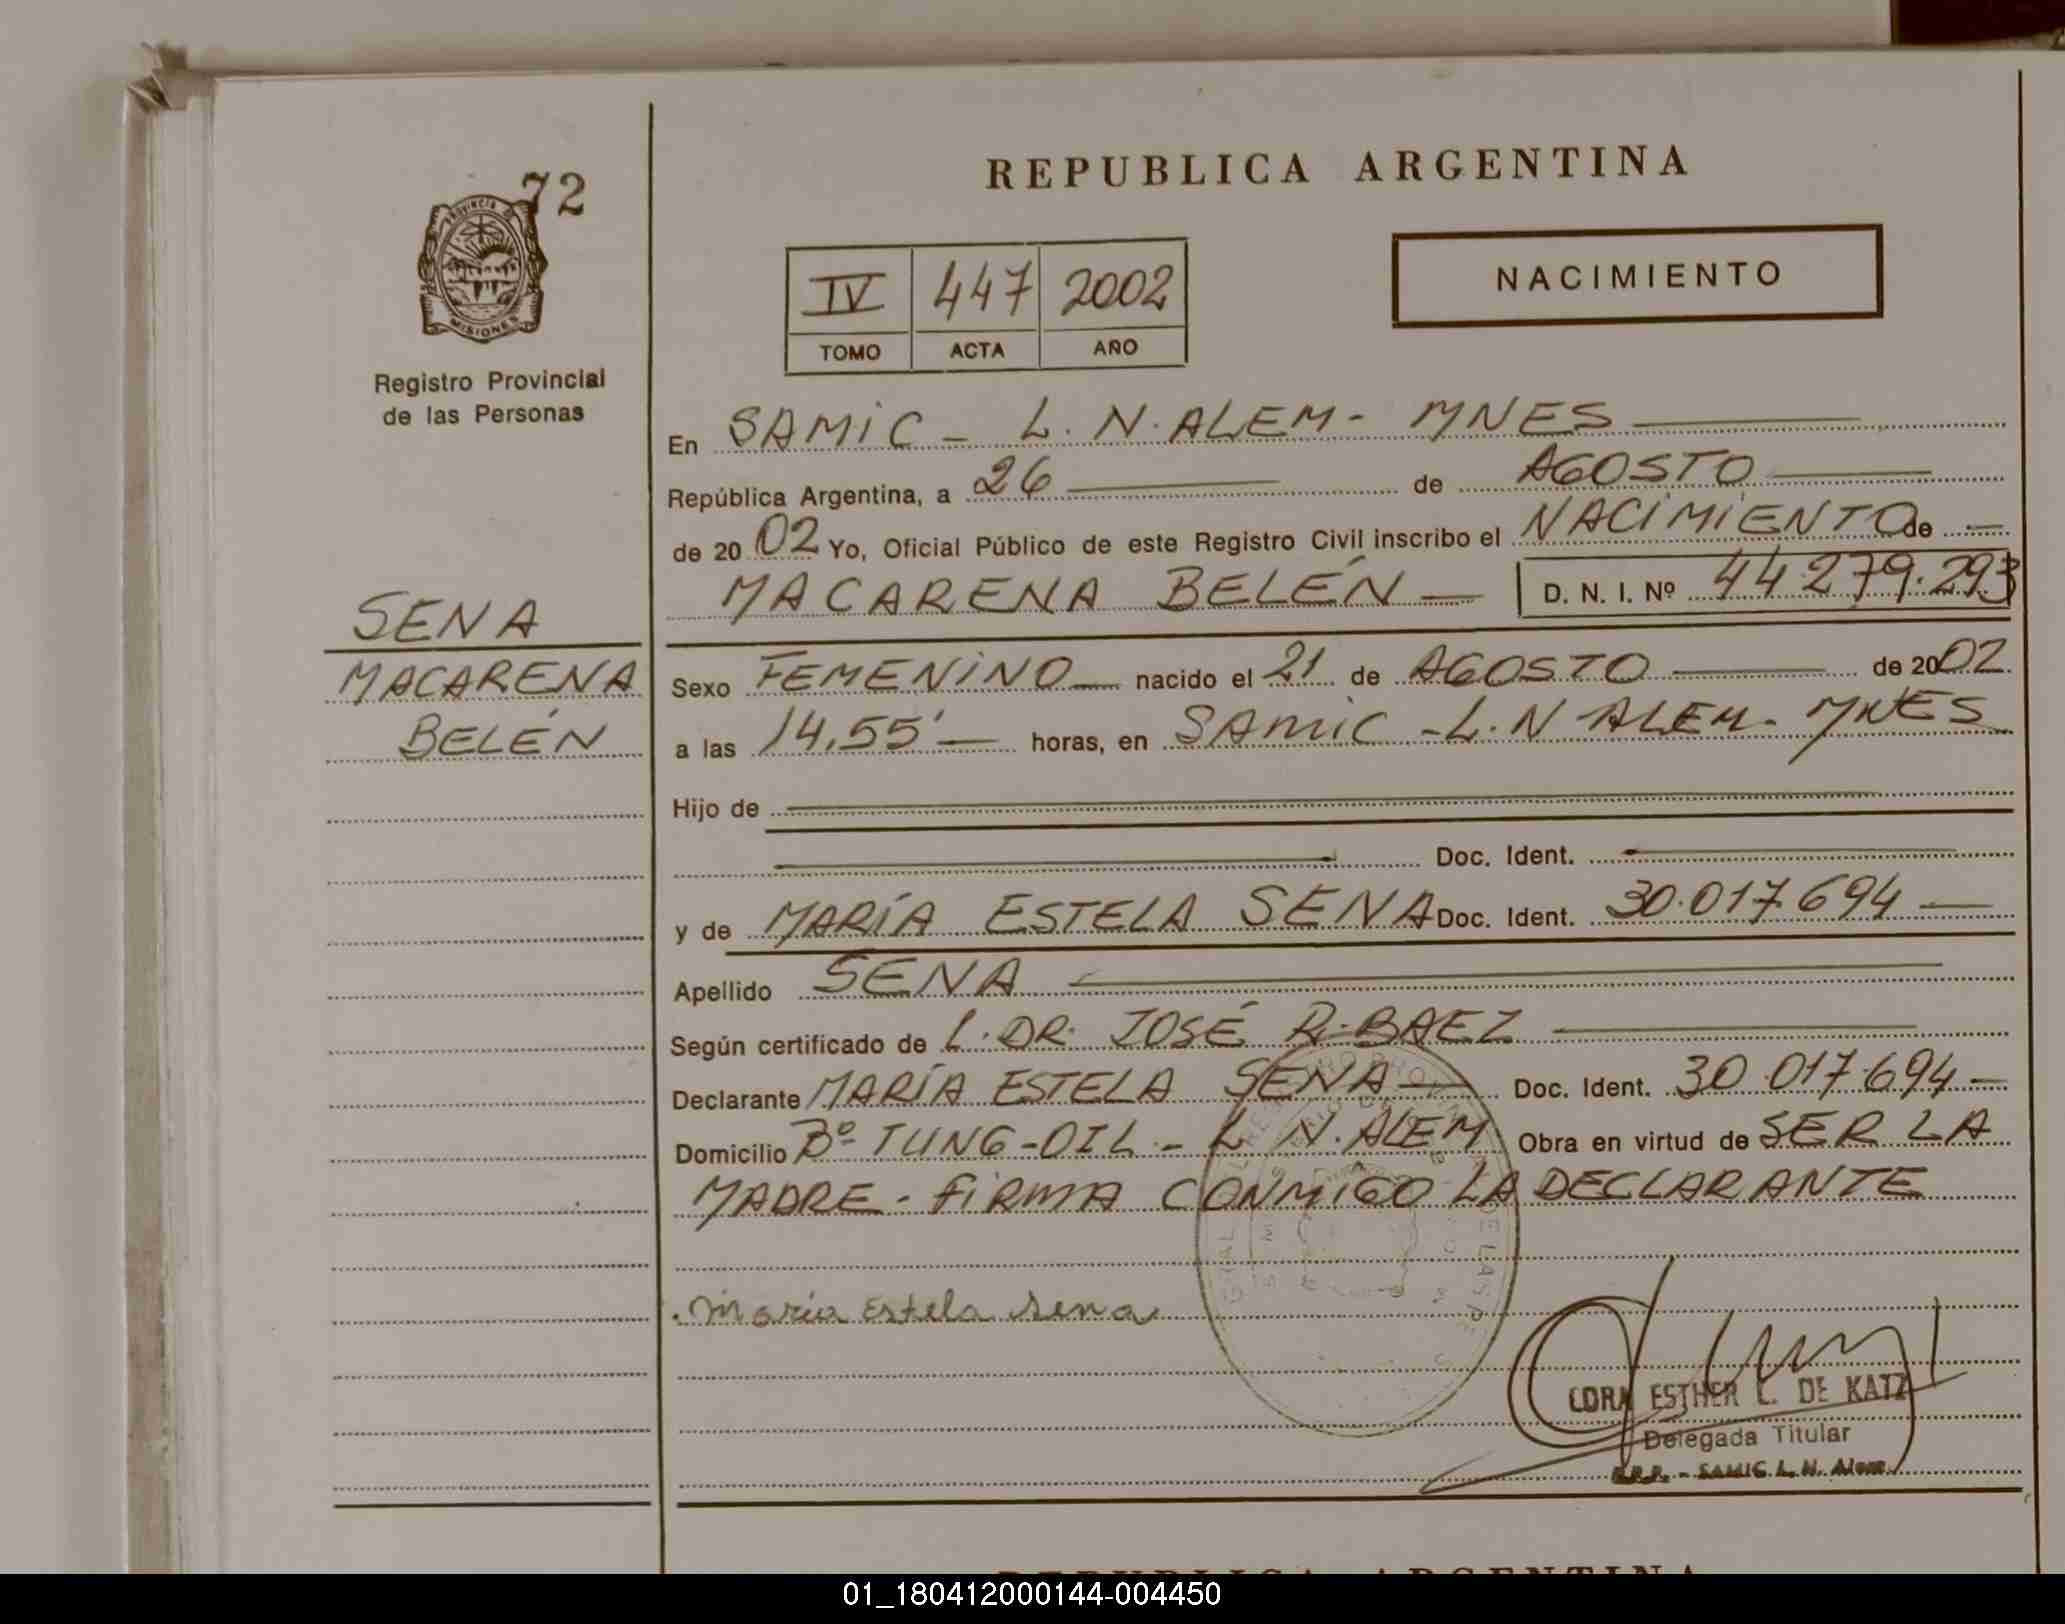 72
PROVINCIA DE
MISIONES
Registro Provincial
de las Personas
SENA
MACARENA
BELÉN
REPUBLICA ARGENTINA
IV 447 2002
TOMO ACTA AÑO
NACIMIENTO
En SAMIC - L. N. ALEM - MNES
República Argentina, a 26 de AGOSTO
de 20 02 Yo, Oficial Público de este Registro Civil inscribo el NACIMIENTO de
MACARENA BELÉN D. N. I. Nº 44.279.293
Sexo FEMENINO nacido el 21 de AGOSTO de 2002
a las 14,55' horas, en SAMIC - L. N ALEM - MNES
Hijo de
Doc. Ident.
y de MARÍA ESTELA SENA Doc. Ident. 30.017.694
Apellido SENA
Según certificado de L. DR. JOSÉ R. BAEZ
Declarante MARÍA ESTELA SENA Doc. Ident. 30.017.694
Domicilio Bº TUNG-OIL - L. N. ALEM Obra en virtud de SER LA
MADRE - FIRMA CONMIGO LA DECLARANTE
Maria Estela Sena
CORA ESTHER L. DE KATZ
Delegada Titular
R.P.P. - SAMIC L. N. Alem
REPUBLICA ARGENTINA
01_180412000144-004450